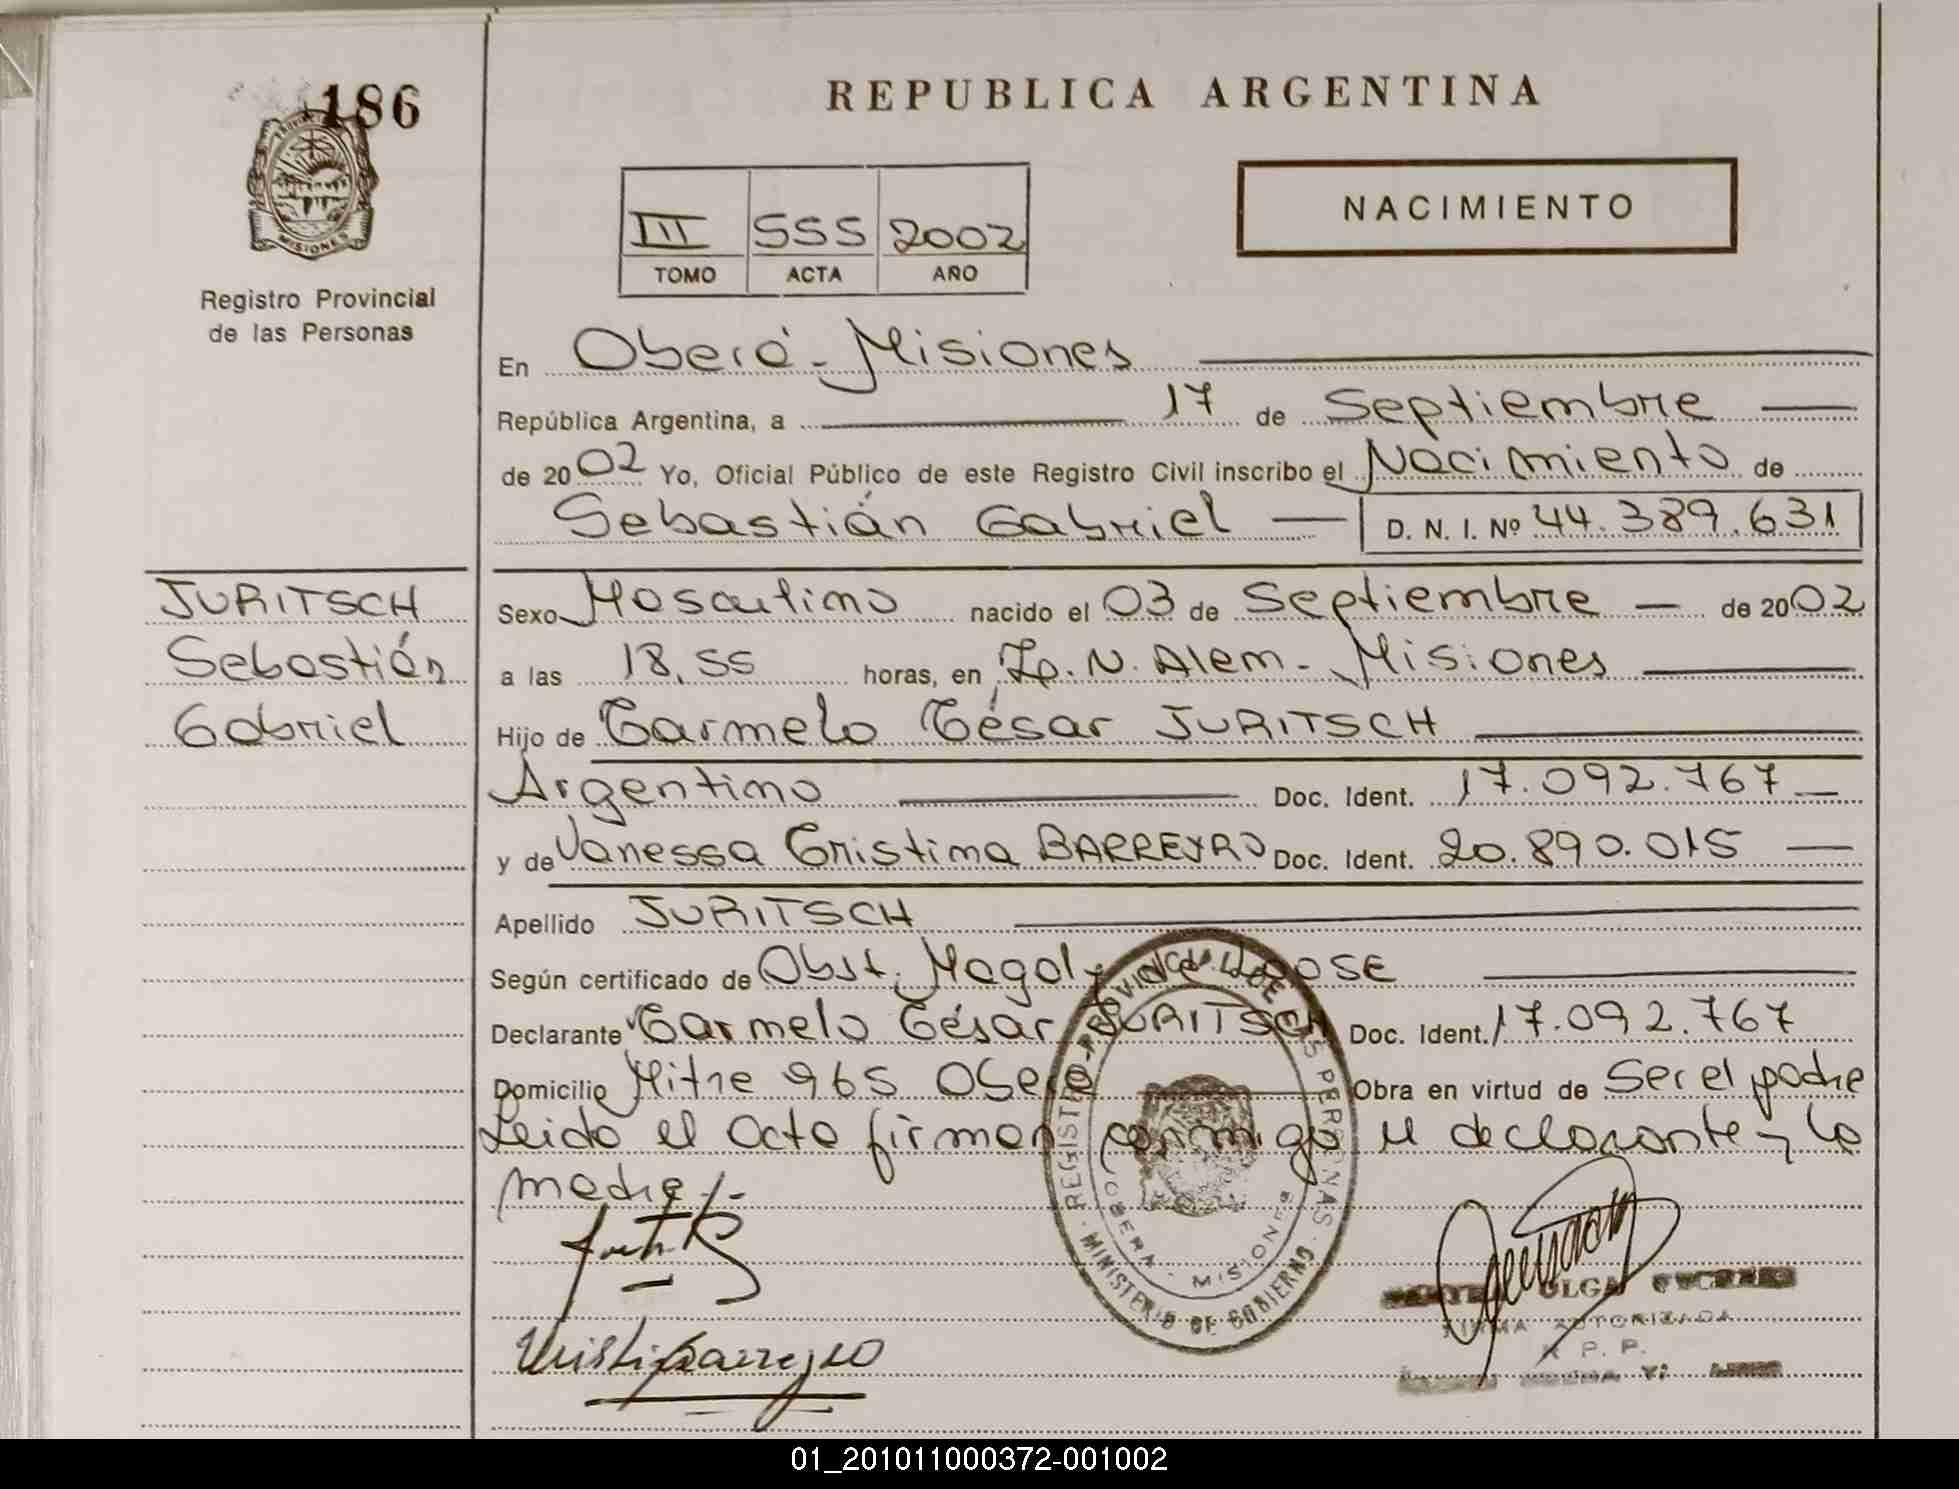 186
REPUBLICA ARGENTINA
NACIMIENTO
III 555 2002
TOMO ACTA AÑO
MISIONES
Registro Provincial
de las Personas
En Oberá - Misiones
República Argentina, a 17 de Septiembre
de 2002 Yo, Oficial Público de este Registro Civil inscribo el Nacimiento de
Sebastián Gabriel D. N. I. Nº 44.389.631
JURITSCH
Sebastián
Gabriel
Sexo Masculino nacido el 03 de Septiembre de 2002
a las 18,55 horas, en L. N. Alem - Misiones
Hijo de Carmelo César JURITSCH
Argentino Doc. Ident. 17.092.767
y de Vanessa Cristina BARREYRO Doc. Ident. 20.890.015
Apellido JURITSCH
Según certificado de Obst. Magaly de LOOSE
Declarante Carmelo César JURITSCH Doc. Ident. 17.092.767
Domicilio Mitre 965 Oberá Obra en virtud de Ser el padre
Leido el acta firman conmigo el declarante y la
madre.-
REGISTRO PROVINCIAL DE LAS PERSONAS
OBERA - MISIONES
MINISTERIO DE GOBIERNO
OLGA
FIRMA AUTORIZADA
R. P. P.
01_201011000372-001002